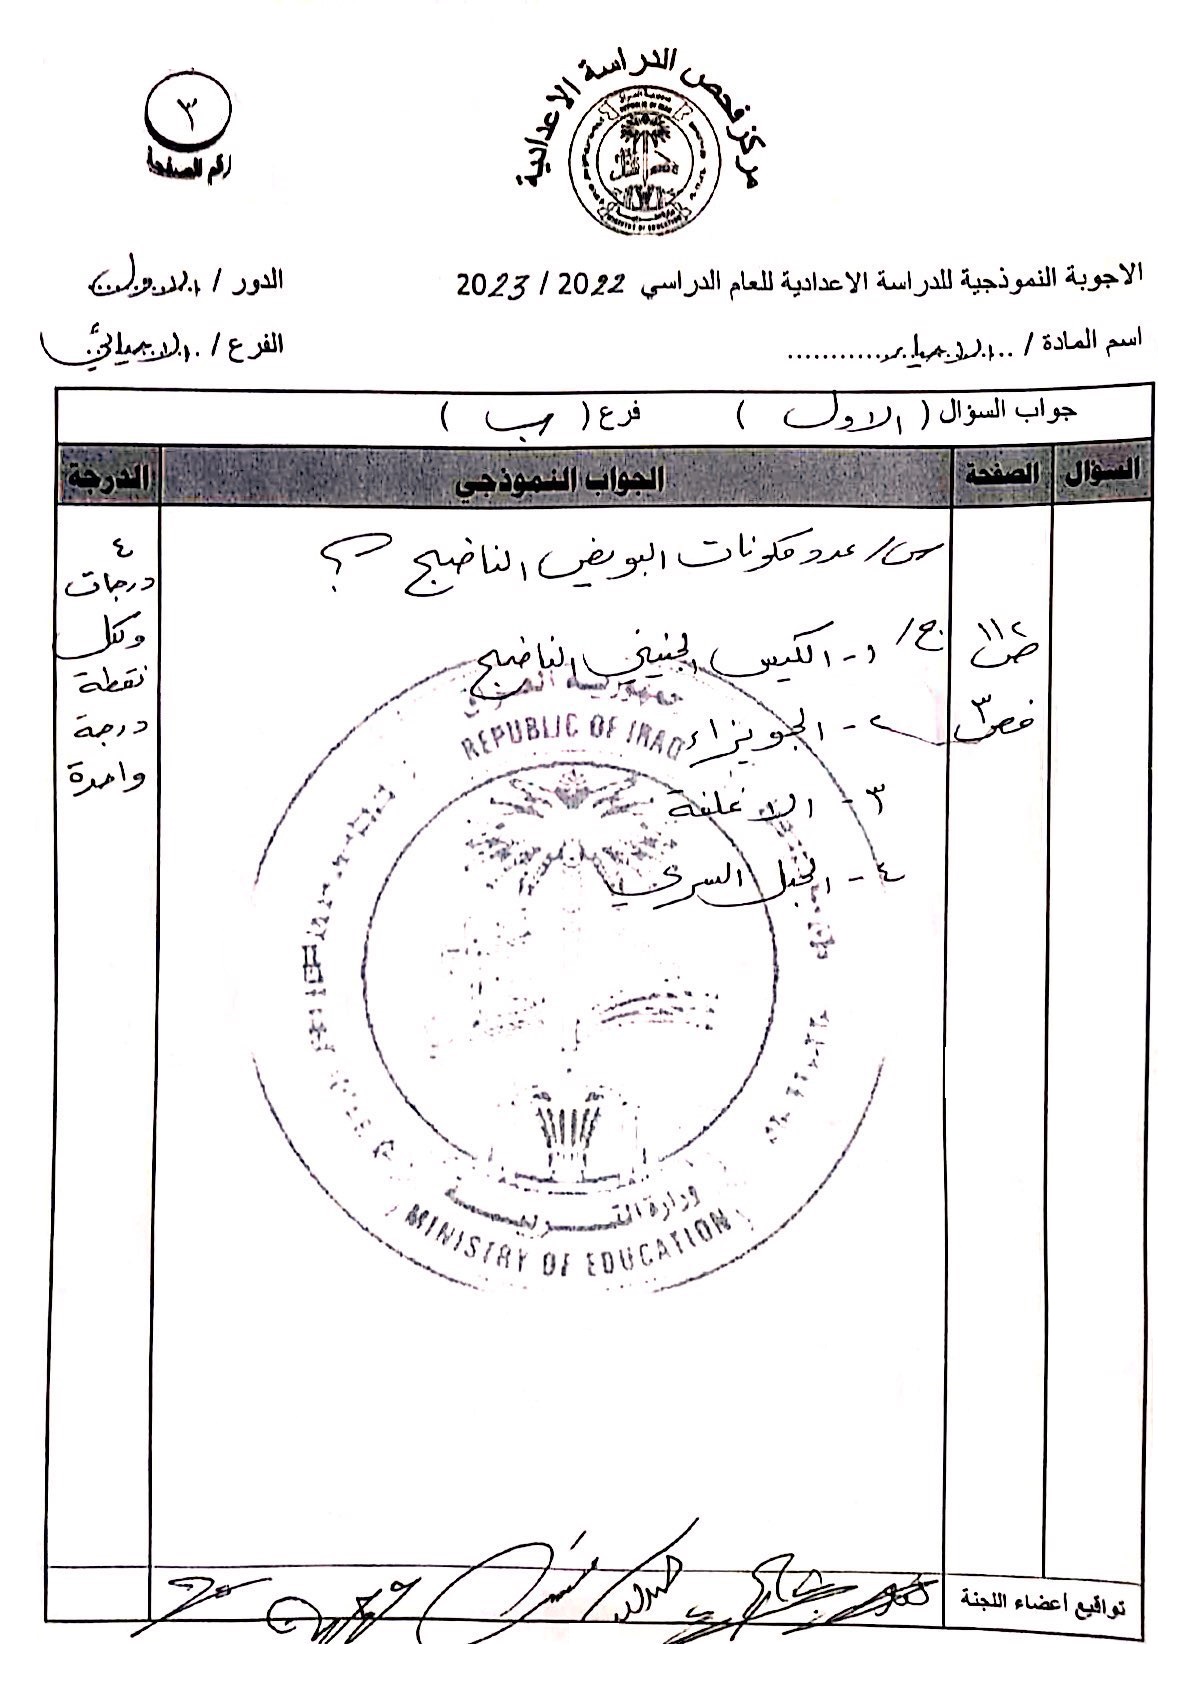 مركز فحص الدراسة الاعدادية
REPUBLIC OF IRAQ
MINISTRY OF EDUCATION
٣
رقم الصفحة
الاجوبة النموذجية للدراسة الاعدادية للعام الدراسي 2022 / 2023
الدور / الاول
اسم المادة / الاحياء
الفرع / الاحيائي
جواب السؤال ( الاول ) فرع ( ب )
السؤال الصفحة الجواب النموذجي الدرجة
س/ عدد مكونات البويض الناضج ؟
ص ١١٢
فص ٣
ج/ ١- الكيس الجنيني الناضج
٢- الجويزاء
٣- الاغلفة
٤- الحبل السري
٤
درجات
ولكل
نقطة
درجة
واحدة
جمهورية العراق
REPUBLIC OF IRAQ
وزارة التربية
MINISTRY OF EDUCATION
تواقيع اعضاء اللجنة